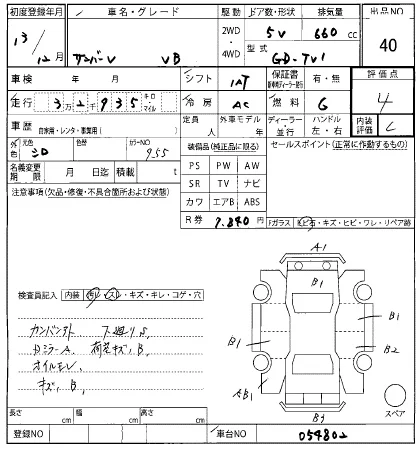 初度登録年月 車名・グレード 駆動 ドア数・形状 排気量 出品NO
13/12月 サンバーV VB 2WD・4WD 5V 660cc 40
型式 GD-TV1
車検 年 月 シフト 1AT 保証書 有・無 評価点
走行 3万2千935キロ・マイル 冷房 AC 燃料 G 4
車歴 自家用・レンタ・事業用( ) 定員 人 外車モデル 年 ディーラー・並行 ハンドル 左・右 内装評価 C
外色 元色 シロ 色替 カラーNO 955 装備品(純正品に限る) セールスポイント(正常に作動するもの)
名義変更期限 月 日迄 積載 t PS PW AW
注意事項(欠品・修復・不具合箇所および状態) SR TV ナビ
カワ エアB ABS
R券 7.840円 Fガラス 飛石・キズ・ヒビ・ワレ・リペア跡
A1
B1
B1
B1
B1
B2
AB1
B1
スペア
検査員記入 内装 汚レ・スレ・キズ・キレ・コゲ・穴
下廻りS,
Dミラー A. 荷台キズ, B,
オイルモレ
キズ, B,
長さ cm 幅 cm 高さ cm
登録NO 車台NO 054802